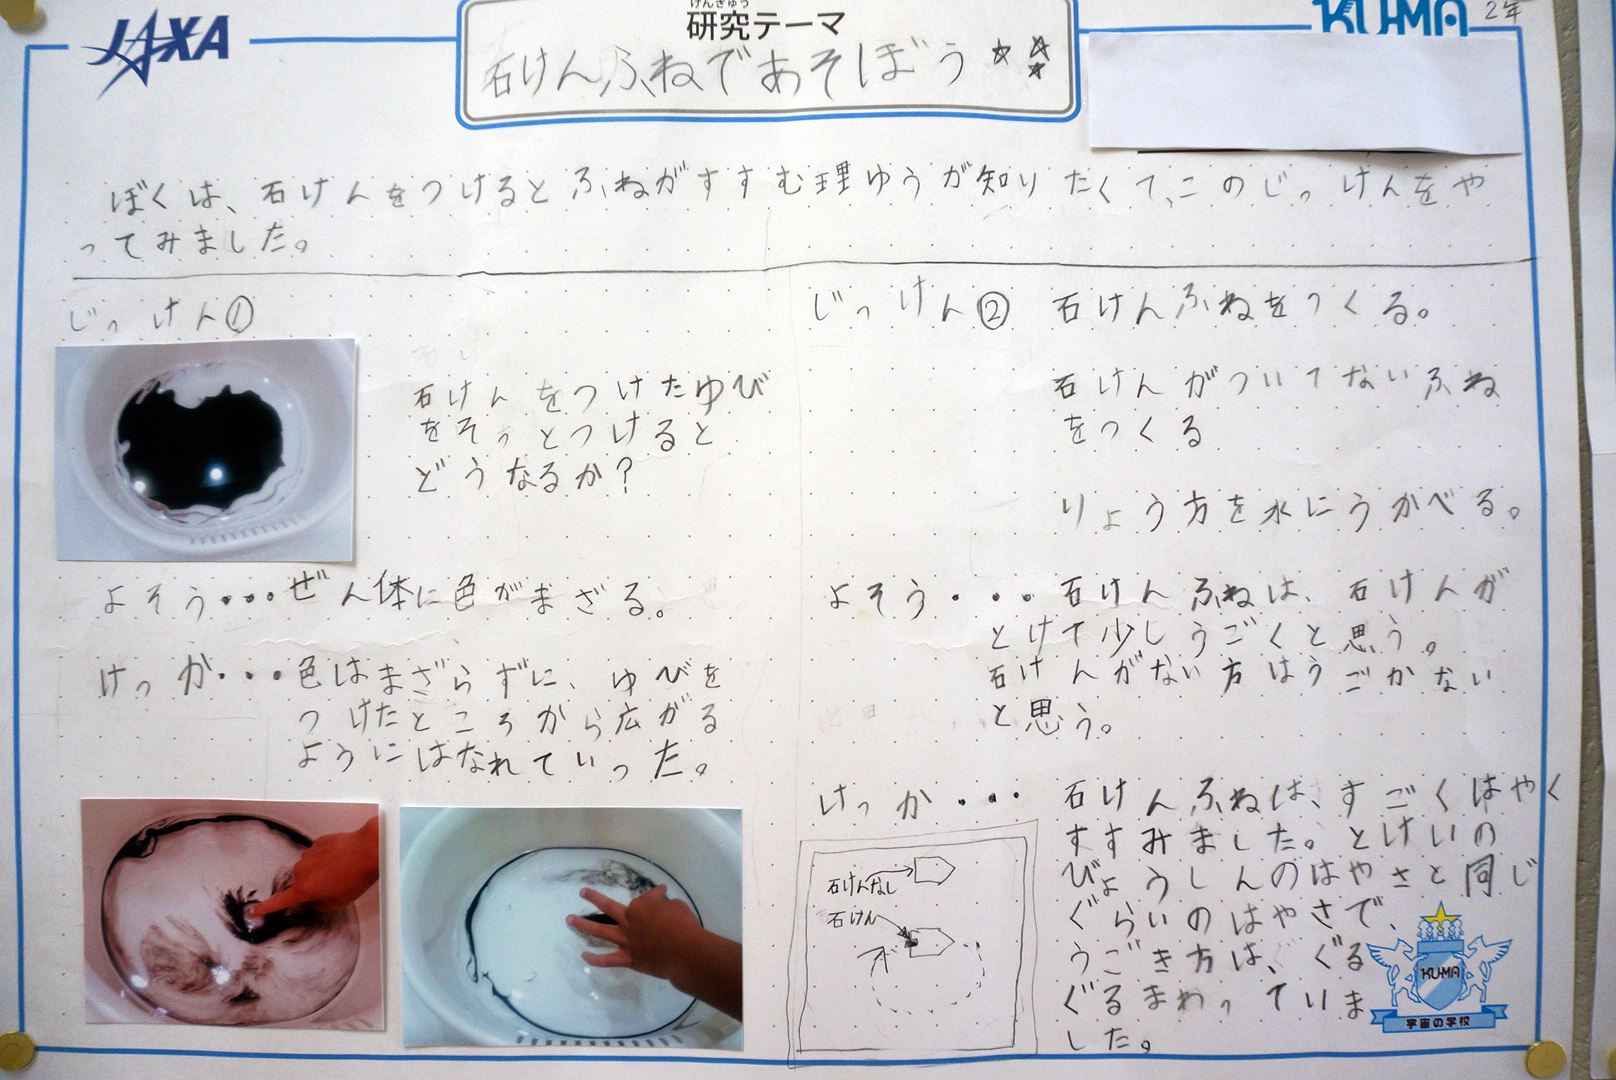 JAXA
けんきゅう
研究テーマ
KU-MA
2年
石けんふねであそぼう
ぼくは、石けんをつけるとふねがすすむ理ゆうが知りたくて、このじっけんをや
ってみました。
じっけん①
石けんをつけたゆび
をそっとつけると
どうなるか?
よそう・・・ぜん体に色がまざる。
けっか・・・色はまざらずに、ゆびを
つけたところから広がる
ようにはなれていった。
じっけん② 石けんふねをつくる。
石けんがついてないふね
をつくる
りょう方を水にうかべる。
よそう・・・石けんふねは、石けんが
とけて少しうごくと思う。
石けんがない方はうごかない
と思う。
けっか・・・石けんふねは、すごくはやく
すすみました。とけいの
びょうしんのはやさと同じ
ぐらいのはやさで、
うごき方は、ぐる
ぐるまわっていま
した。
石けんなし
石けん
KU-MA
宇宙の学校